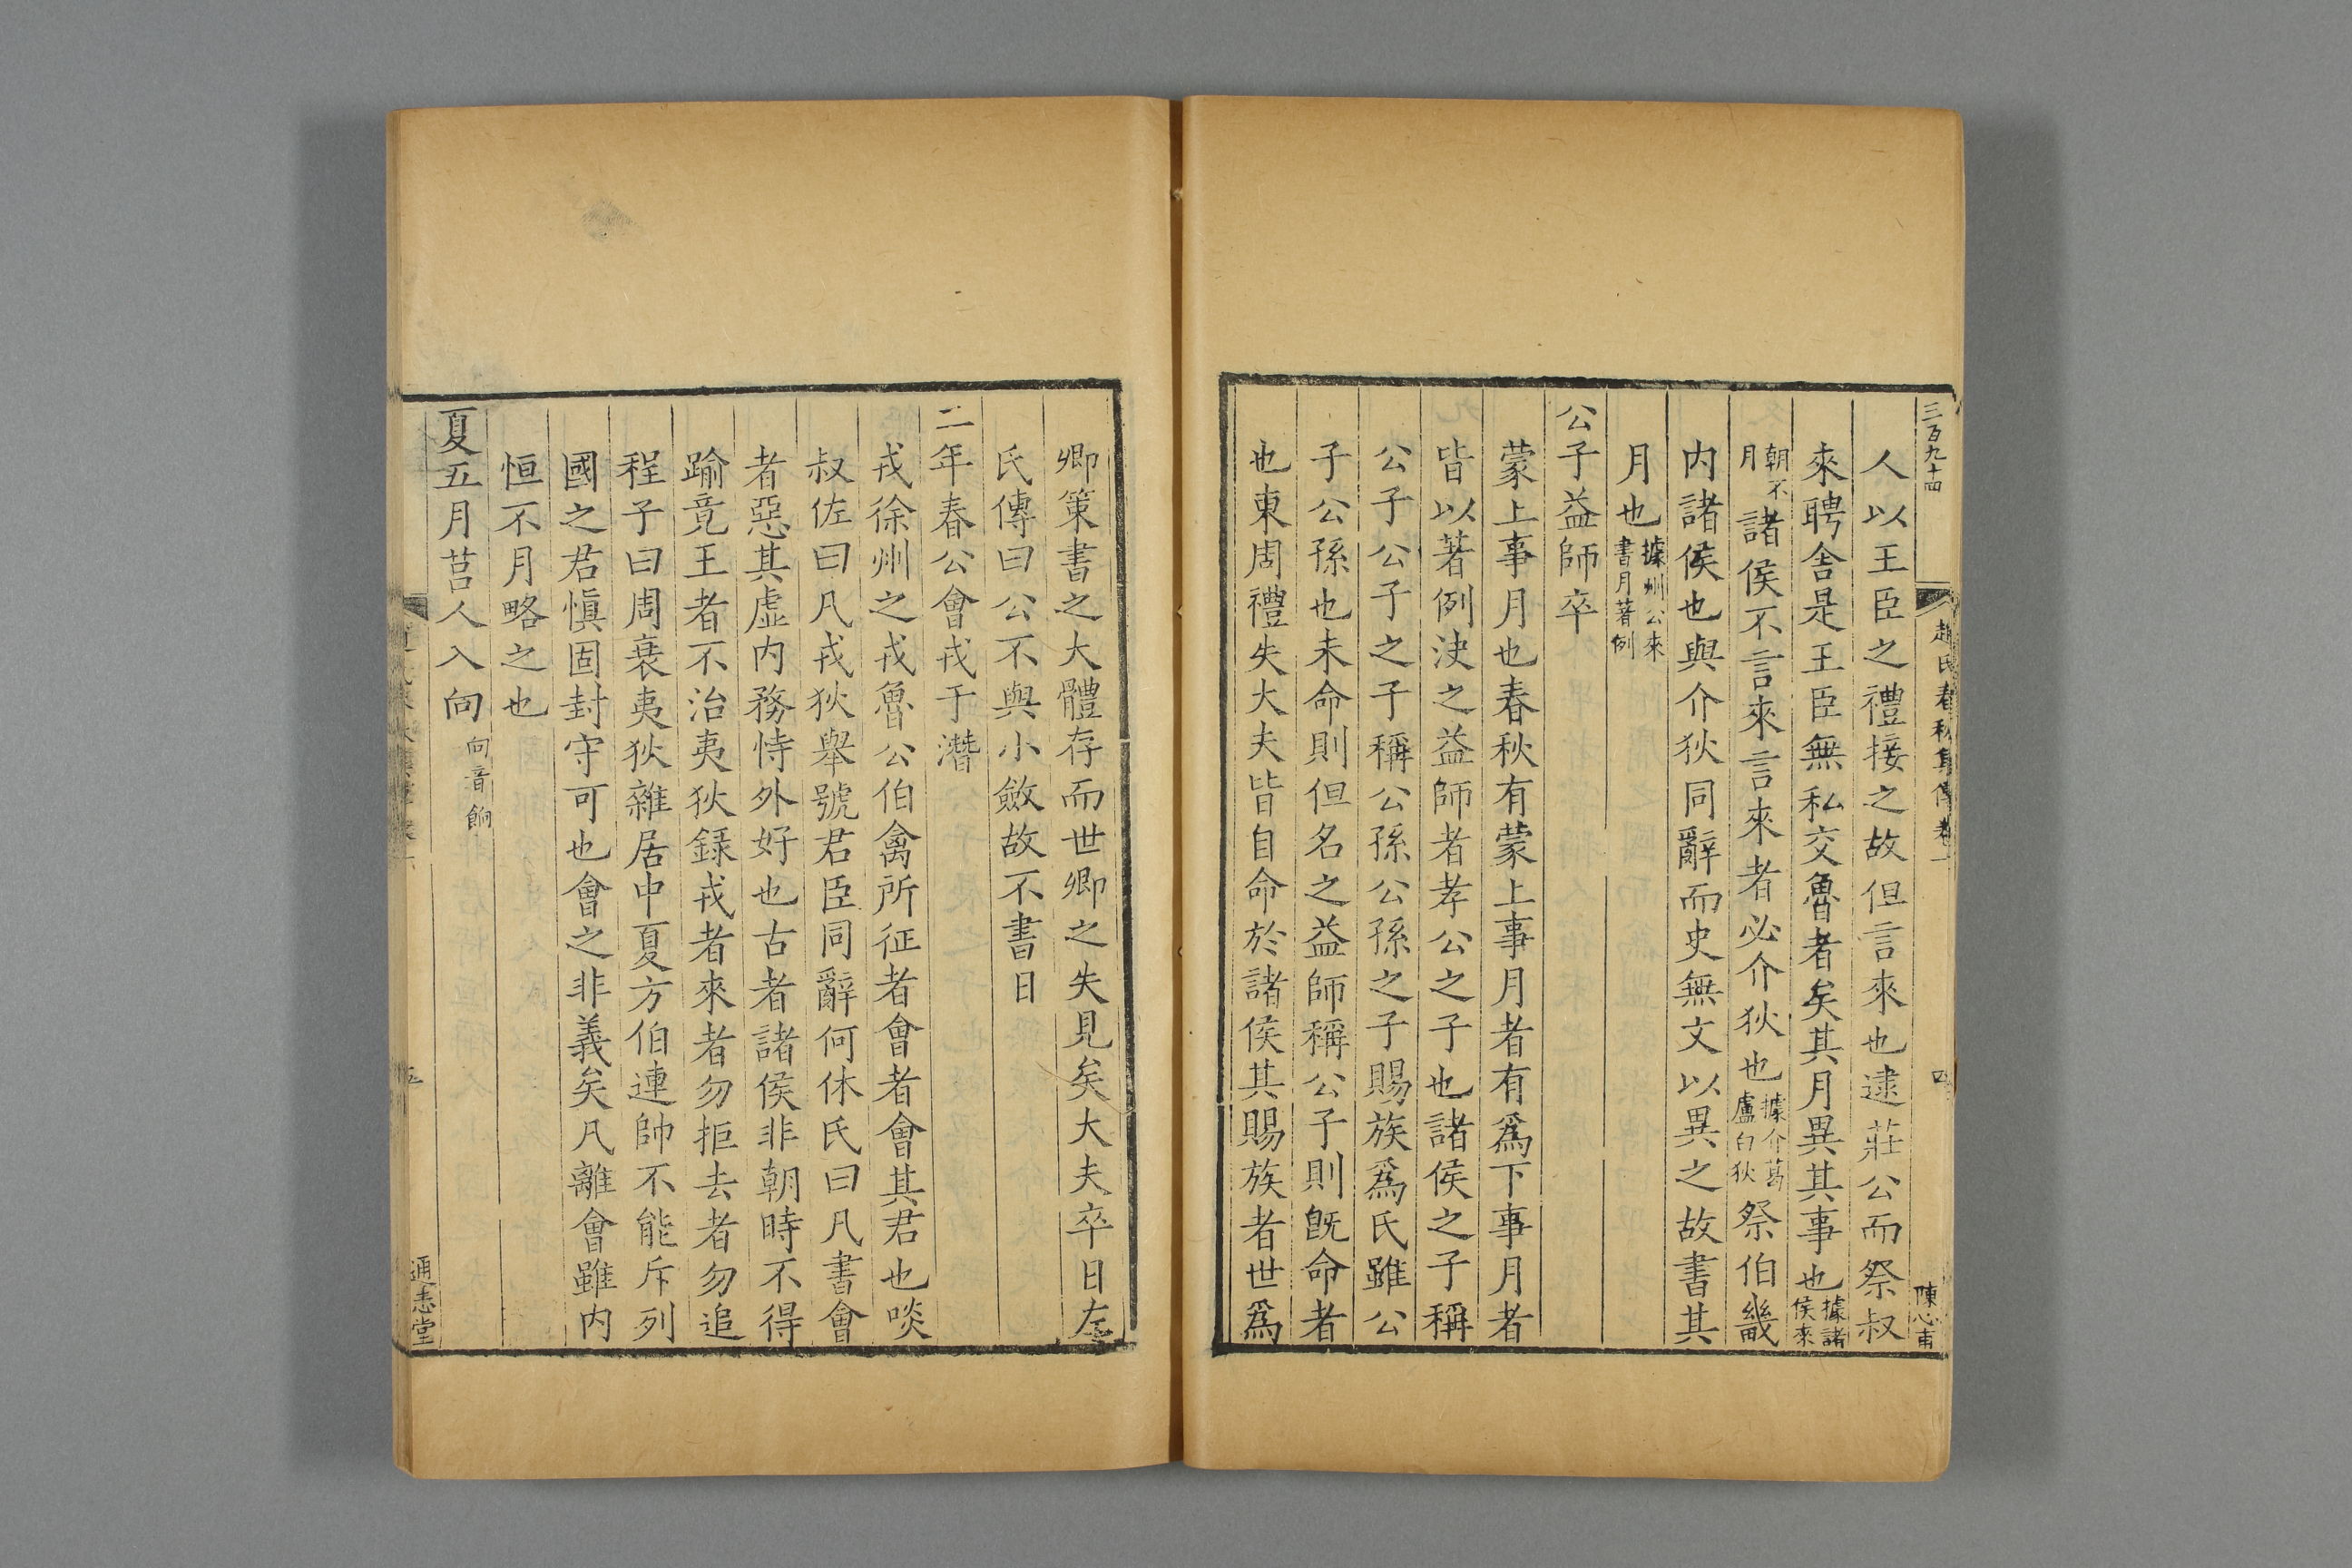 三百九十四
趙氏春秋集傳卷一
四
陳心甫
人以王臣之禮接之故但言來也逮莊公而祭叔
來聘舍是王臣無私交魯者矣其月異其事也據諸侯來
朝不月諸侯不言來言來者必介狄也據介葛盧白狄祭伯畿
内諸侯也與介狄同辭而史無文以異之故書其
月也據州公來書月著例
公子益師卒
蒙上事月也春秋有蒙上事月者有爲下事月者
皆以著例決之益師者孝公之子也諸侯之子稱
公子公子之子稱公孫公孫之子賜族爲氏雖公
子公孫也未命則但名之益師稱公子則旣命者
也東周禮失大夫皆自命於諸侯其賜族者世爲
卿策書之大體存而世卿之失見矣大夫卒日左
氏傳曰公不與小斂故不書日
二年春公會戎于潛
戎徐州之戎魯公伯禽所征者會者會其君也啖
叔佐曰凡戎狄舉號君臣同辭何休氏曰凡書會
者惡其虛内務恃外好也古者諸侯非朝時不得
踰竟王者不治夷狄録戎者來者勿拒去者勿追
程子曰周衰夷狄雜居中夏方伯連帥不能斥列
國之君愼固封守可也會之非義矣凡離會雖内
恒不月略之也
夏五月莒人入向向音餉
五
通志堂